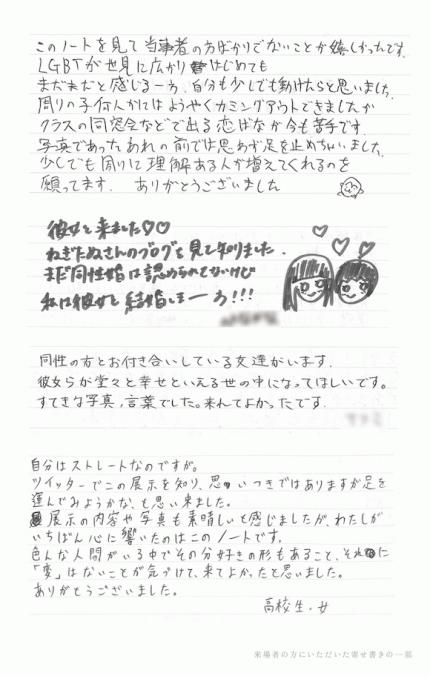 このノートを見て当事者の方ばかりでないことが嬉しかったです。
LGBTが世見に広がりはじめても
まだまだと感じる一方、自分も少しでも動けたらと思いました。
周りの子何人かにはようやくカミングアウトできましたが
クラスの同窓会などで出る恋ばなが今も苦手です。
写真であった、あれの前では思わず足を止めちゃいました。
少しでも周りに理解ある人が増えてくれるのを
願ってます。 ありがとうございました
彼女と来ました♡♡
ねぎたぬさんのブログを見て知りました.
まだ同性婚は認められてないけど
私は彼女と結婚しまーす!!!
同性の方とお付き合いしている友達がいます.
彼女らが堂々と幸せといえる世の中になってほしいです。
すてきな写真,言葉でした。来れてよかったです.
自分はストレートなのですが。
ツイッターでこの展示を知り、思いつきではありますが足を
運んでみようかな、と思い来ました。
展示の内容や写真も素晴しいと感じましたが、わたしが
いちばん心に響いたのはこのノートです。
色んな人間がいる中でその分好きの形もあること、それに
「変」はないことが気づけて、来てよかったと思いました。
ありがとうございました。
高校生.女
来場者の方にいただいた寄せ書きの一部